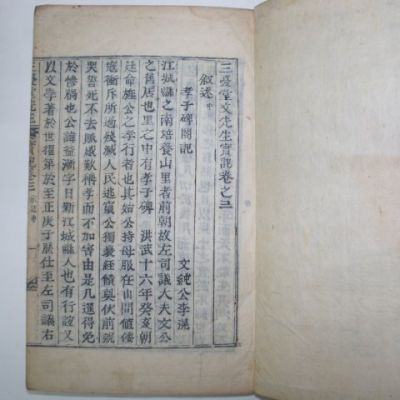 三憂堂文先生實記卷之三
敍述中
孝子碑閣記
文純公李滉
江城縣之南培養山里者前朝故左司議大夫文公
之舊居也里之中有孝子碑 洪武十六年癸亥朝
廷命旌公之孝行者也其始公持母服在山間値倭
寇衝斥所過殘滅人民逃竄公獨衰絰饋奠伏前號
哭誓死不去賊感歎稱孝而不加害由是几筵得免
於慘禍也公諱益漸字日新江城縣人也有行誼又
以文學著於世擢第於至正庚子歷仕至左司議右